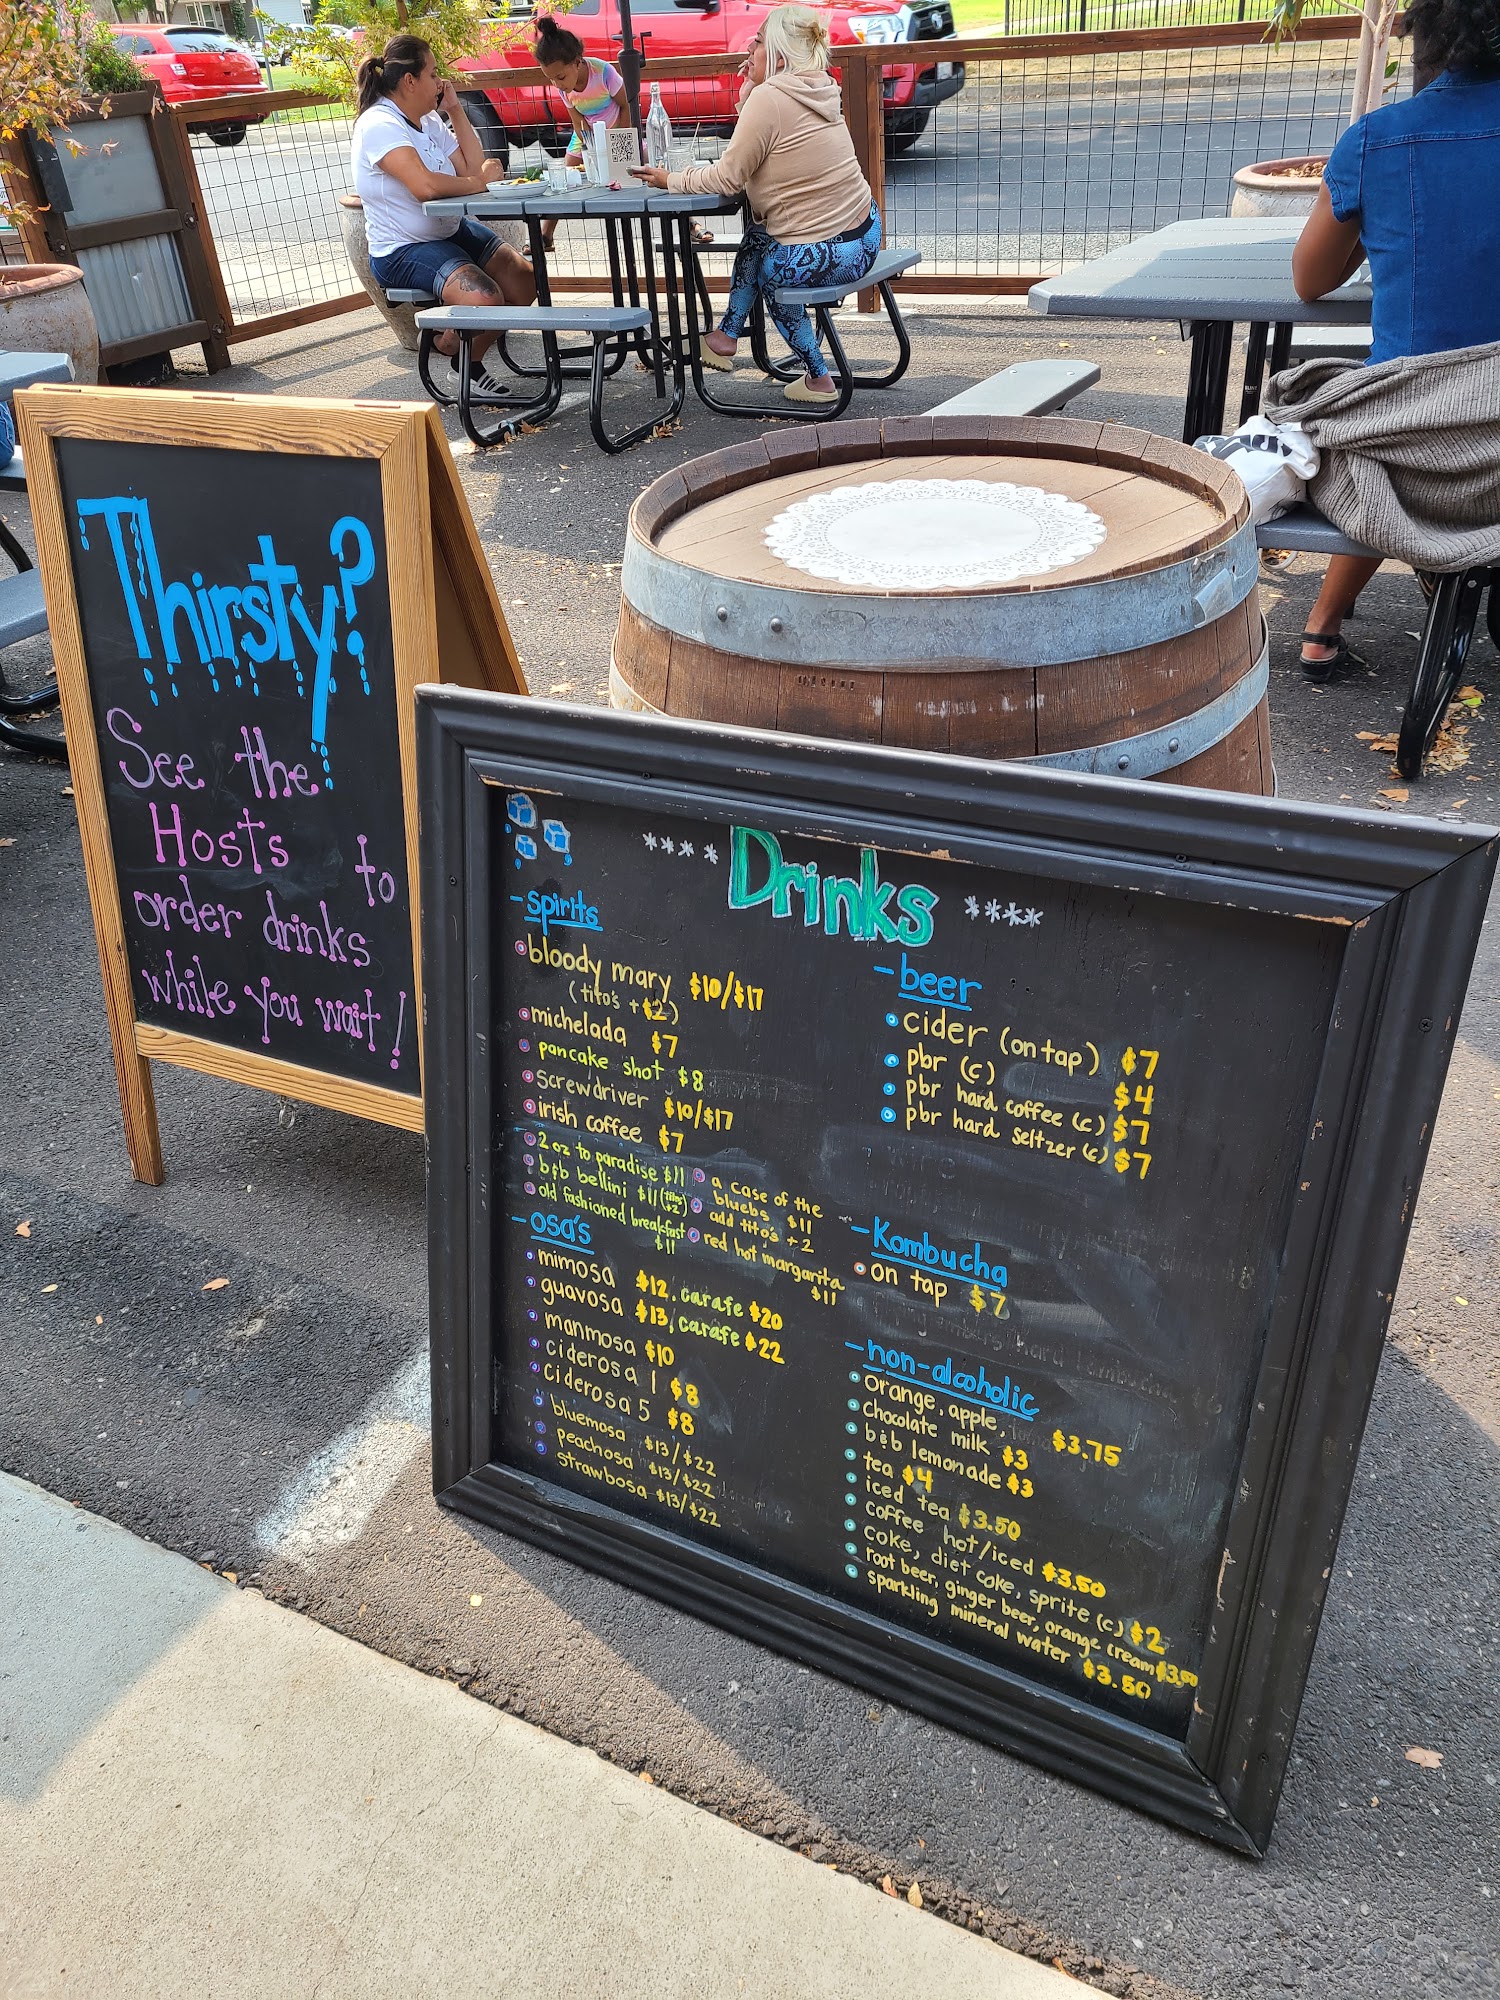 Thirsty?
See the
Hosts to
order drinks
while you wait!
**** Drinks ****
- spirits
bloody mary $10/$17
(tito's + $2)
michelada $7
pancake shot $8
screwdriver $10/$17
irish coffee $7
2 oz to paradise $11
b&b bellini $11 (titos +2)
old fashioned breakfast
$11
a case of the
bluebs $11
add tito's +2
red hot margarita
$11
- osa's
mimosa $12, carafe $20
guavosa $13, carafe $22
manmosa $10
ciderosa 1 $8
ciderosa 5 $8
bluemosa $13/$22
peachosa $13/$22
strawbosa $13/$22
- beer
cider (on tap) $7
pbr (c) $4
pbr hard coffee (c) $7
pbr hard seltzer (c) $7
- Kombucha
on tap $7
- non-alcoholic
orange, apple, $3.75
chocolate milk $3
b&b lemonade $3
tea $4
iced tea $3.50
coffee hot/iced $3.50
coke, diet coke, sprite (c) $2
root beer, ginger beer, orange cream $3.50
sparkling mineral water $3.50